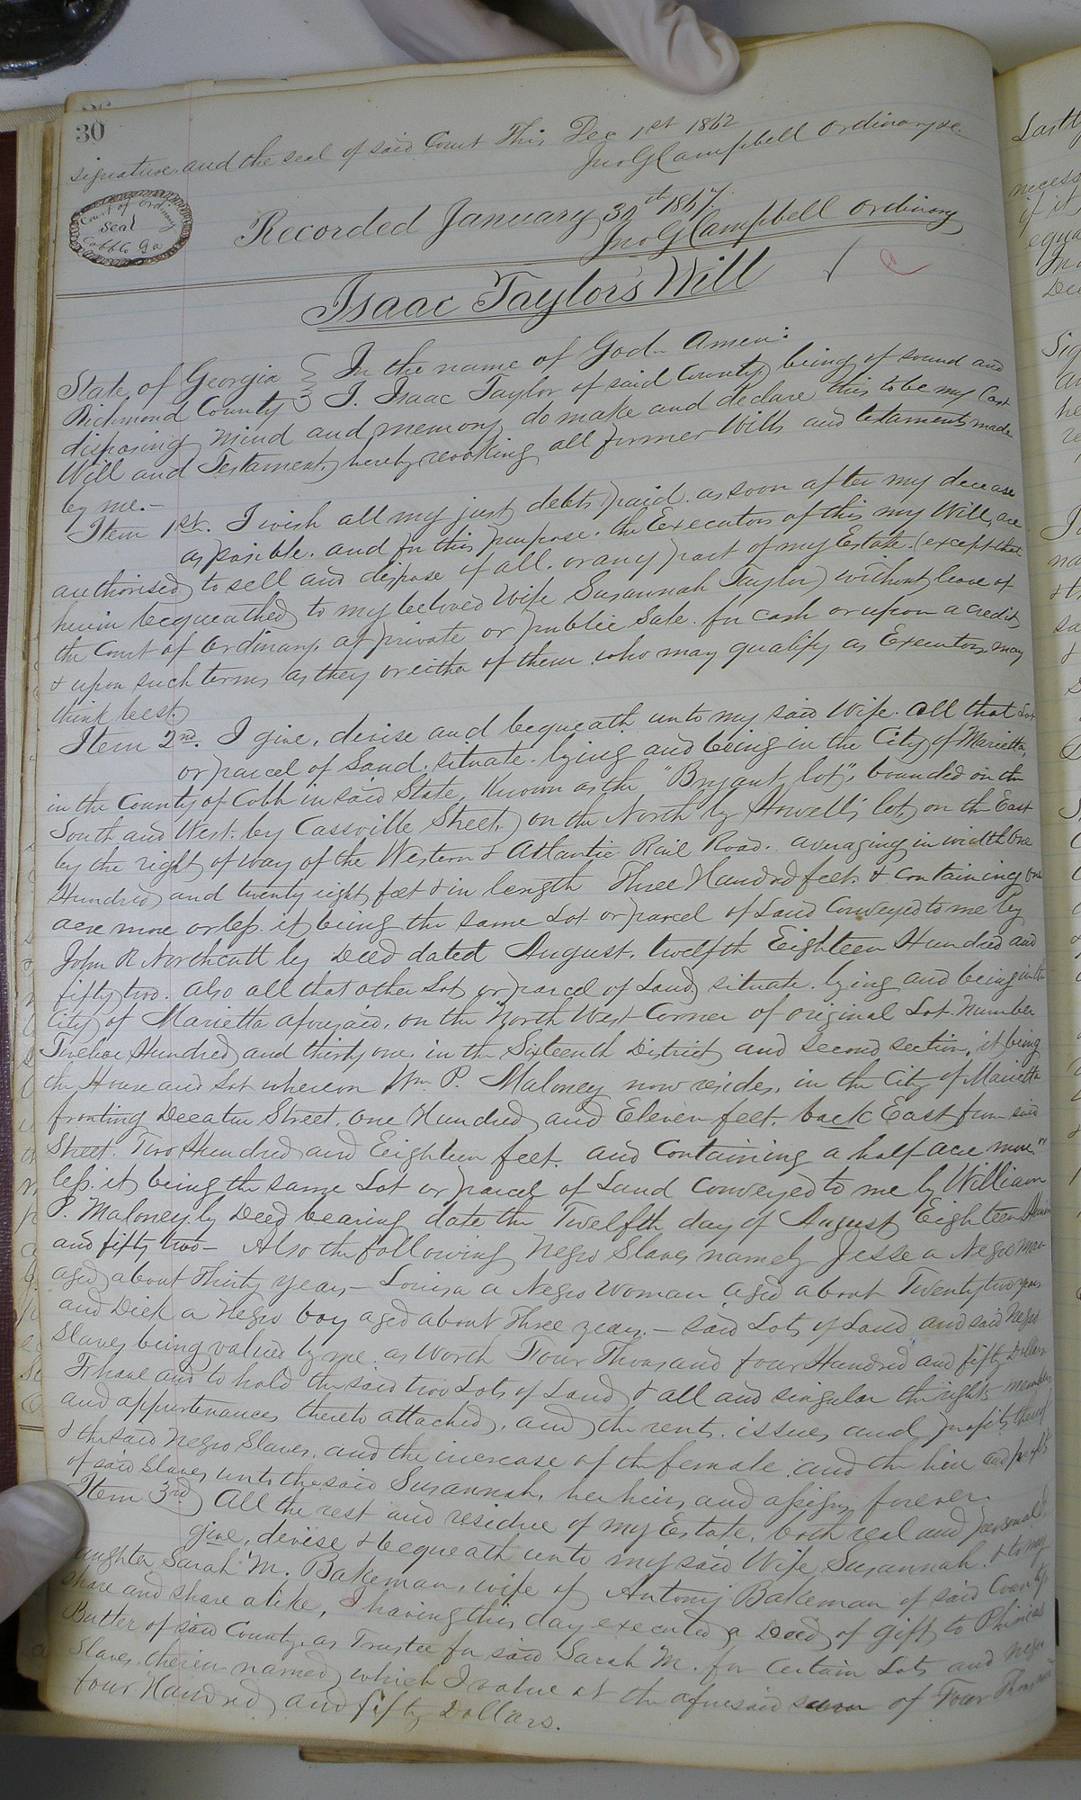 30
signature and the seal of said Court This Dec 1st 1862
Jno G Campbell Ordinary
Recorded January 30th 1867.
Jno G Campbell Ordinary
Court of Ord.
Seal
Cobb Co Ga
Isaac Taylor's Will
State of Georgia } In the name of God Amen:
Richmond County } I, Isaac Taylor of said County being of sound and
disposing mind and memory do make and declare this to be my Last
Will and Testament, hereby revoking all former Wills and testaments made
by me.-
Item 1st. I wish all my just debts paid as soon after my decease
as possible. and for this purpose. the Executors of this my Will, are
authorised to sell and dispose of all. or any part of my Estate. (except that
herein bequeathed to my beloved Wife Susannah Taylor) without leave of
the Court of Ordinary, at private or public Sale. for cash or upon a credit,
& upon such terms as they or either of them who may qualify as Executors may
think best.
Item 2nd. I give, devise and bequeath unto my said Wife. all that Lot
or parcel of Land. situate. lying and being in the City of Marietta,
in the County of Cobb in said State, Known as the "Bryant lot", bounded on the
South and West. by Cassville Street, on the North by Howell's lot, on the East
by the right of way of the Western & Atlantic Rail Road. averaging in width One
Hundred and twenty eight feet & in length Three Hundred feet. & containing one
acre more or less. it being the same Lot or parcel of Land Conveyed to me by
John R Northcutt by Deed dated August. twelfth Eighteen Hundred and
fifty two. also all that other Lot or parcel of Land situate. lying and being in the
City of Marietta aforesaid, on the North West Corner of original Lot Number
Twelve Hundred and thirty one in the Sixteenth District and Second section, it being
the House and Lot whereon Wm. P. Maloney now resides, in the City of Marietta
fronting Decatur Street. One Hundred and Eleven feet. back East from said
Street. Two Hundred and Eighteen feet. and Containing a half acre more "
less. it being the same Lot or parcel of Land Conveyed to me by William
P. Maloney by Deed bearing date the Twelfth day of August Eighteen Hundred
and fifty two- Also the following Negro Slaves namely Jesse a Negro man
aged about Thirty years- Louisa a Negro Woman aged about Twenty two years
and Dick a Negro boy aged about Three years.- said Lots of Land and said Negro
Slaves being valued by me as worth Four Thousand four Hundred and fifty Dollars
To have and to hold the said two Lots of Land & all and singular the rights members
and appurtenances thereto attached, and the rents, issues, and profits thereof
& the said Negro Slaves, and the increase of the female, and the hire and profits
of said Slaves unto the said Susannah, her heirs, and assigns, forever.
Item 3rd All the rest and residue of my Estate, both real and personal I
give, devise & bequeath unto my said Wife Susannah. & to my
daughter Sarah M. Bakeman, wife of Antony Bakeman of said County
share and share alike, I having this day executed a Deed of gift to Phinias
Butler of said County, as Trustee for said Sarah M. for certain Lots and negro
Slaves therein named, which I value at the aforesaid sum of Four Thousand
four Hundred and fifty Dollars.